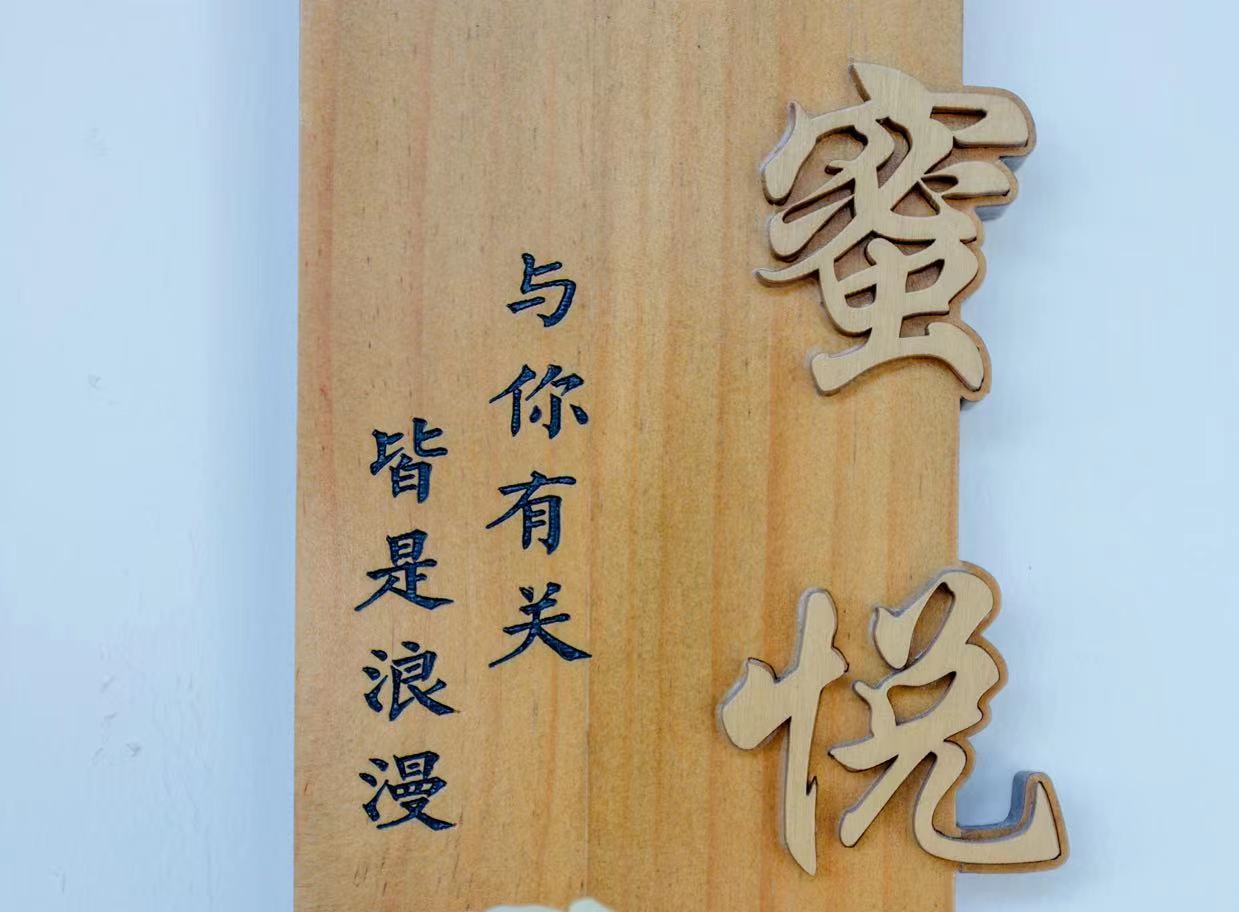 蜜悦
与你有关
皆是浪漫